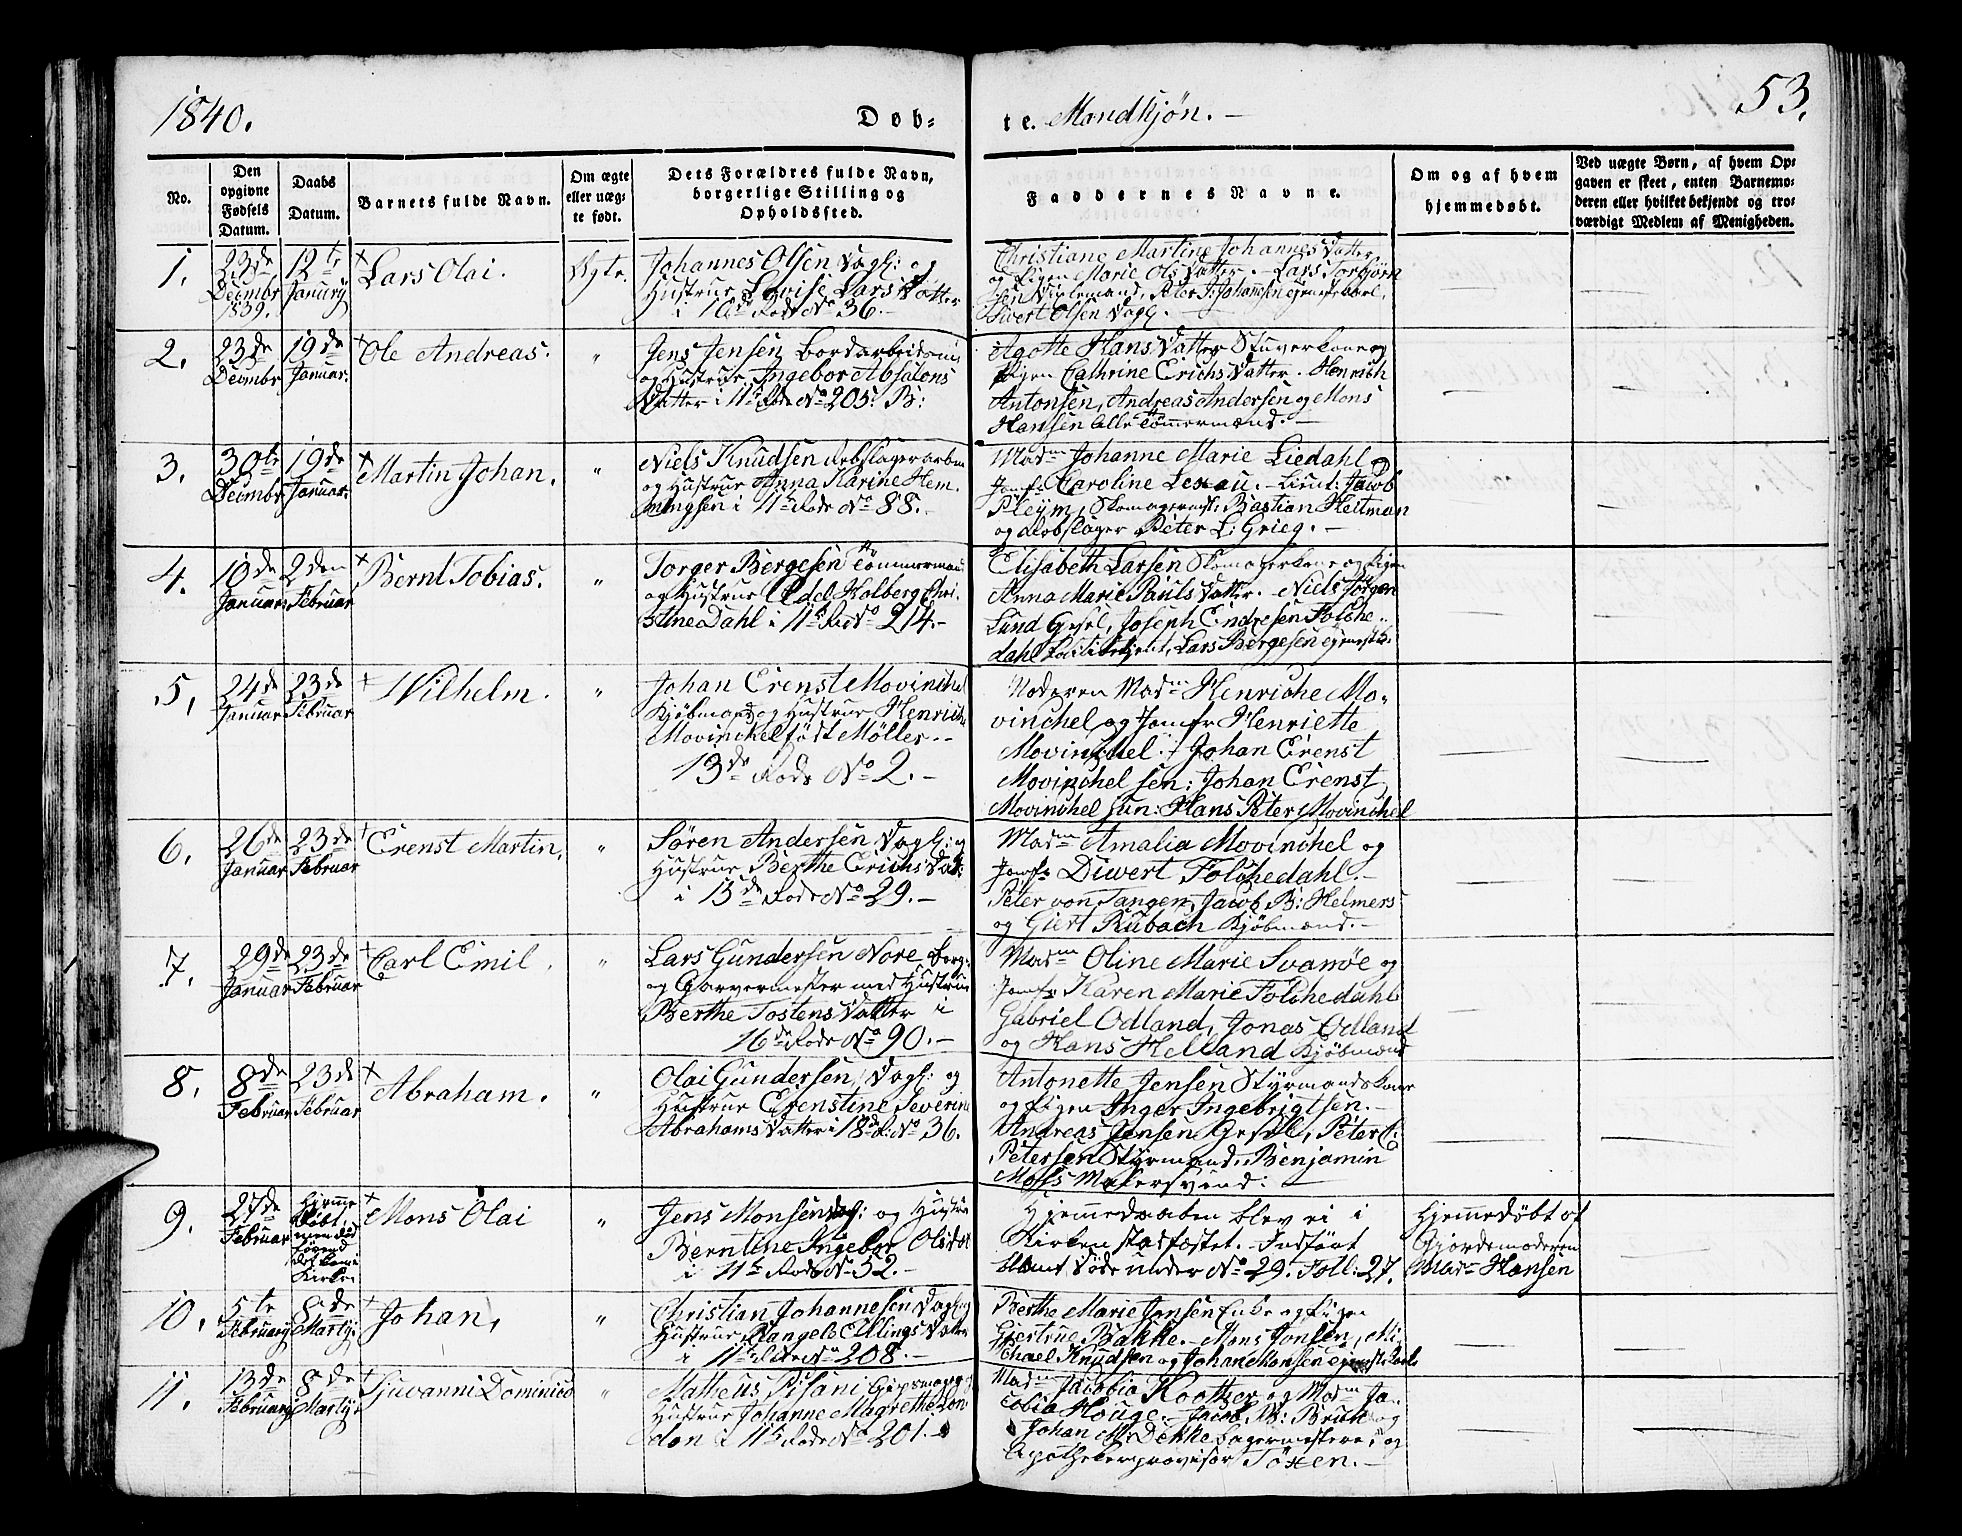 1840.
Døb-
te. Mandkjøn.
53.
No.
Den opgivne Fødsels Datum.
Daabs Datum.
Barnets fulde Navn.
Om ægte eller uægte født.
Dets Forældres fulde Navn, borgerlige Stilling og Opholdssted.
Faddernes Navne.
Om og af hvem hjemmedøbt.
Ved uægte Børn, af hvem Opgaven er skeet, enten Barnemoderen eller hvilket bekjendt og troværdigt Medlem af Menigheden.
1.
23de Decmbr 1839.
12te Januarÿ
Lars Olai.
Ægte.
Johannes Olsen Dagl: og
Hustrue Lovise Lars Datter
i 16de Rode No 36.
Christiane Martine Johannes Datter
og Pigen Marie Ols Datter. Lars Torbjörn
sen, Peter J: Johannesen
Sivert Olsen Dagl.
2.
23de Decmbr
19de Januar.
Ole Andreas.
"
Jens Jensen Bordarbeids
og Hustrue Ingebor Absalons
Datter i 11te Rode No 205. B:
Agotte Hans Datter Stuverkone og
Pigen Cathrine Erichs Datter. Henrich
Antonsen, Andreas Andersen og Mons
Hansen Alle Tömermænd.
3.
30te Decmbr
19de Januar.
Martin Johan.
"
Niels Knudsen Rebslagerarbei
og Hustrue Anna Karine Hem
mingsen i 11te Rode No 88.
Madm Johanne Marie Liedahl
Jomfr Caroline Lexau. Lieut: Jacob
Pleym, Skomagermst: Bastian Heltman
og Rebslager Peter L: Grieg.
4.
10de Januar
2den Februar
Bernt Tobias.
"
Torger Bergesen Tömmermand
og Hustrue Edel Holberg Chri
stine Dahl i 11te Rode No 214.
Elisabeth Larsen Skomagerkone og Pigen
Anna Marie Pauls Datter. Niels Jørgen
Lund Gesel, Joseph Endresen Folche
dahl, Lars Bergesen
5.
24de Januar
23de Februar
Wilhelm.
"
Johan Erenst Movinchel
Kjøbmand og Hustrue Henriche
Movinchel født Møller.
13de Rode No 2.
Moderen Madm Henriche Mo-
vinchel og Jomfr Henriette
Movinchel. Johan Erenst
Movinchel sen: Johan Erenst
Movinchel Jun: Hans Peter Movinchel
6.
26de Januar
23de Februar
Erenst Martin.
"
Søren Andersen Dagl: og
Hustrue Berthe Erichs Dat:
i 13de Rode No 29.
Madm Amalia Movinchel og
Jomfr Diwert Folchedahl.
Peter von Tangen, Jacob B: Helmers
og Giert Rubach Kjøbmænd.
7.
29de Januar
23de Februar
Carl Emil.
"
Lars Gundersen Nore Borg:
og Garvermester med Hustrue
Berthe Tostens Datter i
16de Rode No 90.
Madm Oline Marie Svanøe og
Jomfr Karen Marie Folchedahl
Gabriel Odland, Jonas Odland
og Hans Helland Kjøbmænd
8.
8de Februar
23de Februar
Abraham.
"
Olai Gundersen, Dagl: og
Hustrue Erenstine Severine
Abrahams Datter i 18de R: No 36.
Antonette Jensen Styrmandskone
og Pigen Inger Ingebrigtsen.
Andreas Jensen Gesel, Peter C:
Petersen Styrmand, Benjamin
Moss Malersvend.
9.
27de Februar
hjemmedøbt,
men død
Kirken
Mons Olai
"
Jens Monsen Dagl: og Hustrue
Berntine Ingebor Olsdat
i 11te Rode No 52.
Hjemedaaben blev ei i
Kirken stadfæstet. Indført
blant Døde under No 29. Foll: 27.
Hjemmedøbt af
Gjordemoderen
Madm Hansen
10.
5te Februarÿ
8de Martÿ.
Johan,
"
Christian Johannesen Dagl: og
Hustrue Rangele Ellings Datter
i 11te Rode No 208.
Berthe Marie Jensen Enke og Pigen
Giertrue Bakke. Mons Jonsen, Mi-
chael Knudsen og Johan Monsen
11.
13de Februarÿ
8de Martÿ.
Sjuvanni Dominico
"
Matheus Pisani, Gipsmager
Hustrue Johanne Magrethe Lon
don i 11te Rode No 201.
Madm Jacobia Kootzer og Madm Ja-
cobia Houge. Jacob W: Bruk og
Johan M: Dekke Bagermestere, og
Apothekerprovisor Tösten.